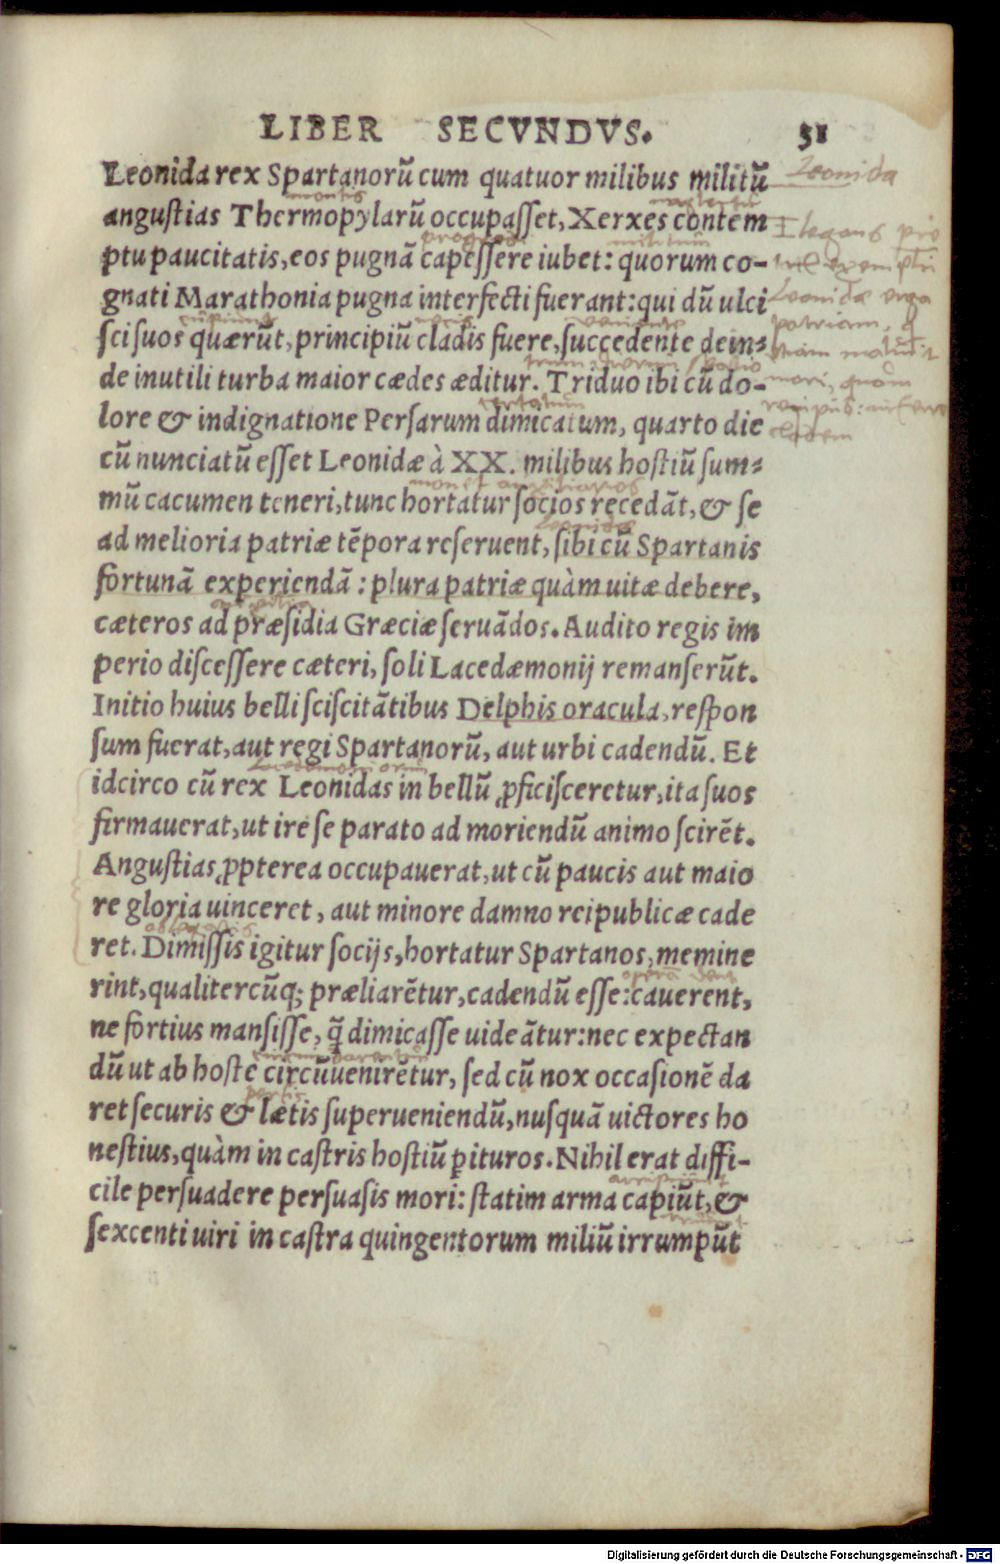 LIBER SECVNDVS. 51
Leonida
Leonida rex Spartanorū cum quatuor milibus militū
montis
angustias Thermopylarū occupasset, Xerxes contem
militum
ptu paucitatis, eos pugnā capessere iubet: quorum co-
gnati Marathonia pugna interfecti fuerant: qui dū ulci
sci suos quærūt, principiū cladis fuere, succedente dein-
de inutili turba maior cædes æditur. Triduo ibi cū do-
lore & indignatione Persarum dimicatum, quarto die
cū nunciatū esset Leonidæ à XX. milibus hostiū sum-
mū cacumen teneri, tunc hortatur socios recedāt, & se
ad melioria patriæ tēpora reseruent, sibi cū Spartanis
fortunā experiendā: plura patriæ quàm uitæ debere,
cæteros ad præsidia Græciæ seruādos. Audito regis im
perio discessere cæteri, soli Lacedæmonij remanserūt.
Initio huius belli sciscitātibus Delphis oracula, respon
sum fuerat, aut regi Spartanorū, aut urbi cadendū. Et
idcirco cū rex Leonidas in bellū ꝓficisceretur, ita suos
firmauerat, ut ire se parato ad moriendū animo scirēt.
Angustias ꝓpterea occupauerat, ut cū paucis aut maio
re gloria uinceret, aut minore damno reipublicæ cade
ret. Dimissis igitur socijs, hortatur Spartanos, memine
rint, qualitercūq; præliarētur, cadendū esse: cauerent,
ne fortius mansisse, q̄ dimicasse uideātur: nec expectan
dū ut ab hoste circūuenirētur, sed cū nox occasionē da
ret securis & lætis superueniendū, nusquā uictores ho
nestius, quàm in castris hostiū ꝑituros. Nihil erat diffi-
cile persuadere persuasis mori: statim arma capiūt, &
sexcenti uiri in castra quingentorum miliū irrumpūt
Digitalisierung gefördert durch die Deutsche Forschungsgemeinschaft - DFG